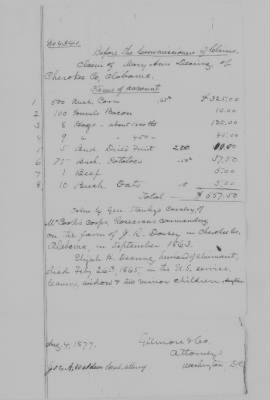 Before the Commissioners of Claims.
Claim of Mary Ann Deering of
Cherokee Co, Alabama.
Items of account
1 500 Bush Corn $325.00
2 100 Pounds Bacon 10.00
3 8 Hogs - about
4 9 " " 450 - 45.00
5 5 Bush Dried Fruit 2.00
6 75 Bush. Potatoes 37.50
7 1 Beef
8 10 Bush Oats 5.00
Total $557.50
Taken by Gen. Stanley's Cavalry, of
McCook's Corps, Rosecrans commanding,
on the farm of J. R. in Cherokee Co,
Alabama, in September 1863.
Elijah H. husband of claimant,
died Feby 26th, 1865, in the U.S. service,
leaving widow & two minor children
Aug. 4, 1877.
Gilmore & Co.
Attorneys
Washington, D.C.